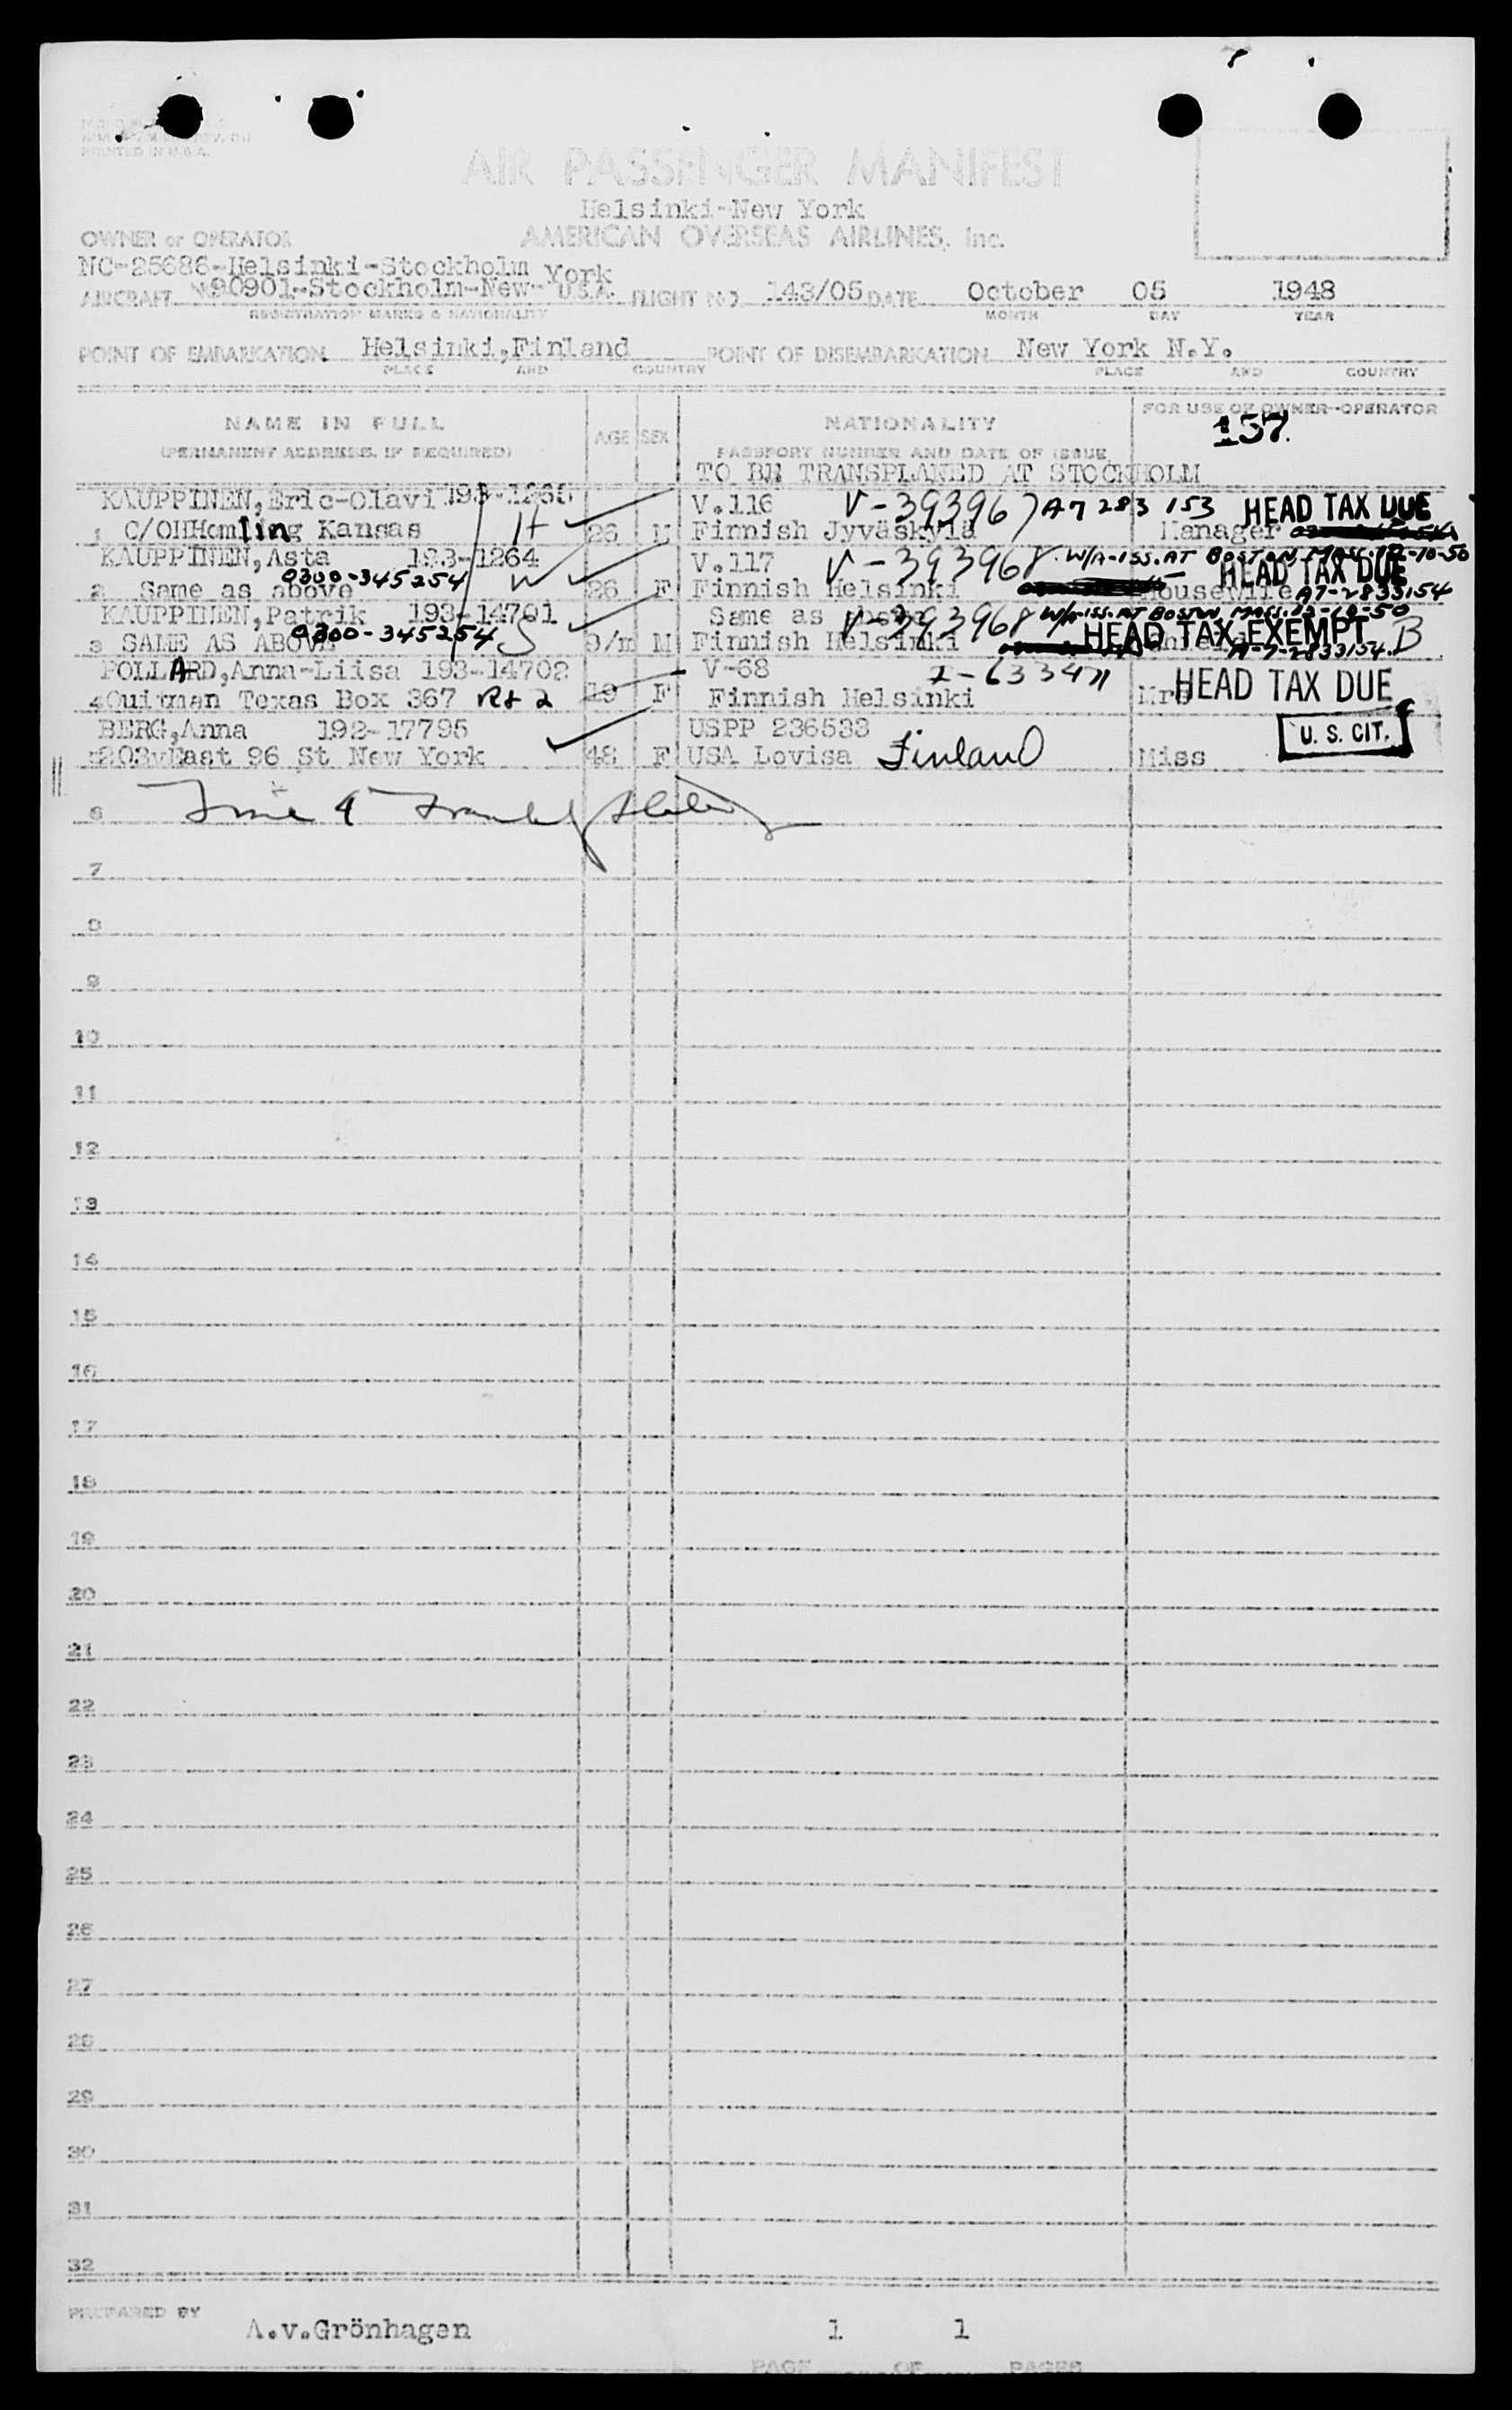 PRINTED IN U.S.A.
AIR PASSENGER MANIFEST
Helsinki-New York
OWNER or OPERATOR AMERICAN OVERSEAS AIRLINES, Inc.
NC-25686-Helsinki-Stockholm
AIRCRAFT 90901-Stockholm-New York U.S.A. FLIGHT NO. 143/05 DATE October 05 1948
REGISTRATION MARKS & NATIONALITY MONTH DAY YEAR
POINT OF EMBARKATION Helsinki,Finland POINT OF DISEMBARKATION New York N.Y.
PLACE AND COUNTRY PLACE AND COUNTRY
NAME IN FULL AGE SEX NATIONALITY FOR USE OF OWNER-OPERATOR
(PERMANENT ADDRESS, IF REQUIRED) PASSPORT NUMBER AND DATE OF ISSUE 157.
TO BE TRANSPLANED AT STOCKHOLM
KAUPPINEN,Eric-Olavi 193-1265 V.116 V-393967 A7 283 153 HEAD TAX DUE
1 C/O Kansas H 26 M Finnish Jyväskylä Manager
KAUPPINEN,Asta 193-1264 V.117 V-393968 W/A-ISS. AT BOSTON, MASS. 12-10-50
0300-345254 HEAD TAX DUE
2 Same as above W 26 F Finnish Helsinki Housewife A7-2833154
KAUPPINEN,Patrik 193-14701 Same as V-393968 W/A-ISS. AT BOSTON, MASS. 12-10-50
0300-345254 HEAD TAX EXEMPT B
3 SAME AS ABOVE S 9/m M Finnish Helsinki A-7-2833154
POLLARD,Anna-Liisa 193-14702 V-68 HEAD TAX DUE
4 Quitman Texas Box 367 Rt 2 19 F Finnish Helsinki Mrs
BERG,Anna 192-17795 USPP 236533 U. S. CIT.
5 203 East 96 St New York 48 F USA Lovisa Finland Miss
6
7
8
9
10
11
12
13
14
15
16
17
18
19
20
21
22
23
24
25
26
27
28
29
30
31
32
PREPARED BY A.v.Grönhagen 1 1
PAGE OF PAGES